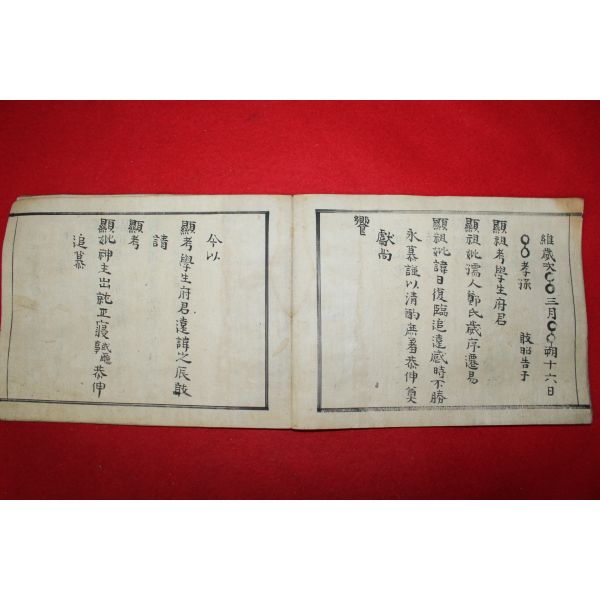 維歲次〇〇三月〇〇朔十六日
〇〇孝孫 敢昭告于
顯祖考學生府君
顯祖妣孺人鄭氏歲序遷易
顯祖妣諱日復臨追遠感時不勝
永慕謹以清酌庶羞恭伸奠
獻尚
饗
今以
顯考學生府君遠諱之辰敢
請
顯考
顯妣神主出就正寢或廳恭伸
追慕